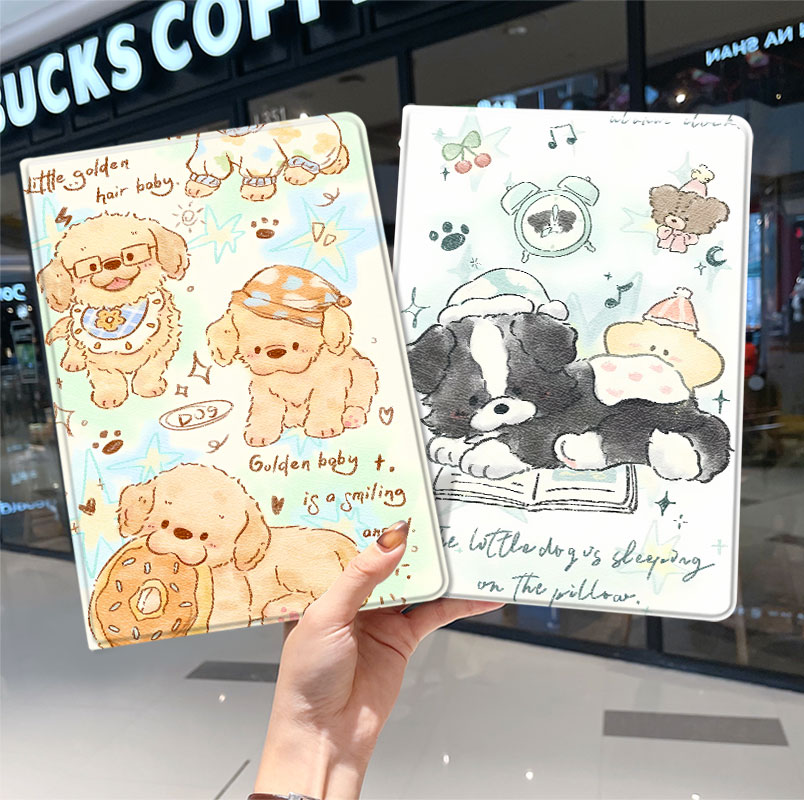 BUCKS COFF
NA SHAN
Little golden
hair baby.
DOG
Golden baby
is a smiling
the lottle dog is sleeping
on the pillow.